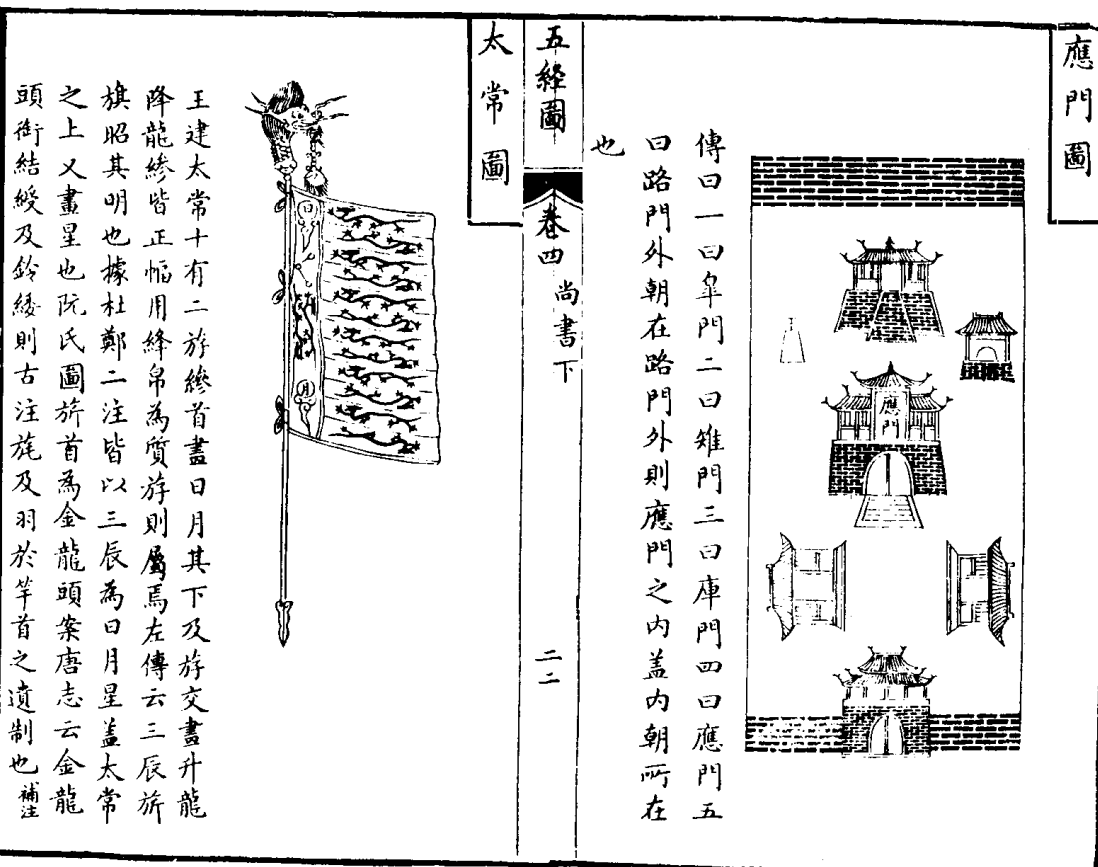 應門圖
應門
傳曰一曰皐門二曰雉門三曰庫門四曰應門五
曰路門外朝在路門外則應門之内盖内朝所在
也
五經圖
卷四
尚書下
二二
太常圖
日
月
王建太常十有二斿縿首畫日月其下及斿交畫升龍
降龍縿皆正幅用絳帛為質斿則屬焉左傳云三辰旂
旗昭其明也據杜鄭二注皆以三辰為日月星盖太常
之上又畫星也阮氏圖旂首為金龍頭案唐志云金龍
頭銜結綬及鈴緌則古注旄及羽於竿首之遺制也補注